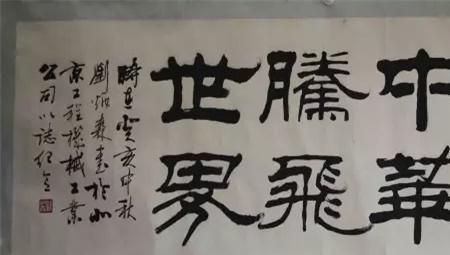 中華
騰飛
世界
時在癸亥中秋
劉炳森書於北
京工程機械工業
公司以誌紀念